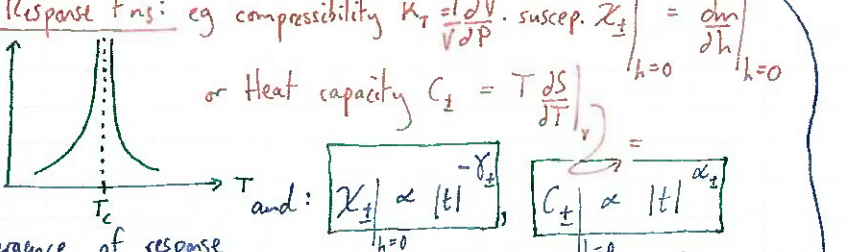 Response fns: eg compressibility K_T = 1/V dV/dP . suscep. χ_±|_{h=0} = dm/dh|_{h=0}
or Heat capacity C_± = T dS/dT|_V
=
T
T_c
and: χ_±|_{h=0} ∝ |t|^{-γ_±}, C_±|_{h=0} ∝ |t|^{α_±}
of response